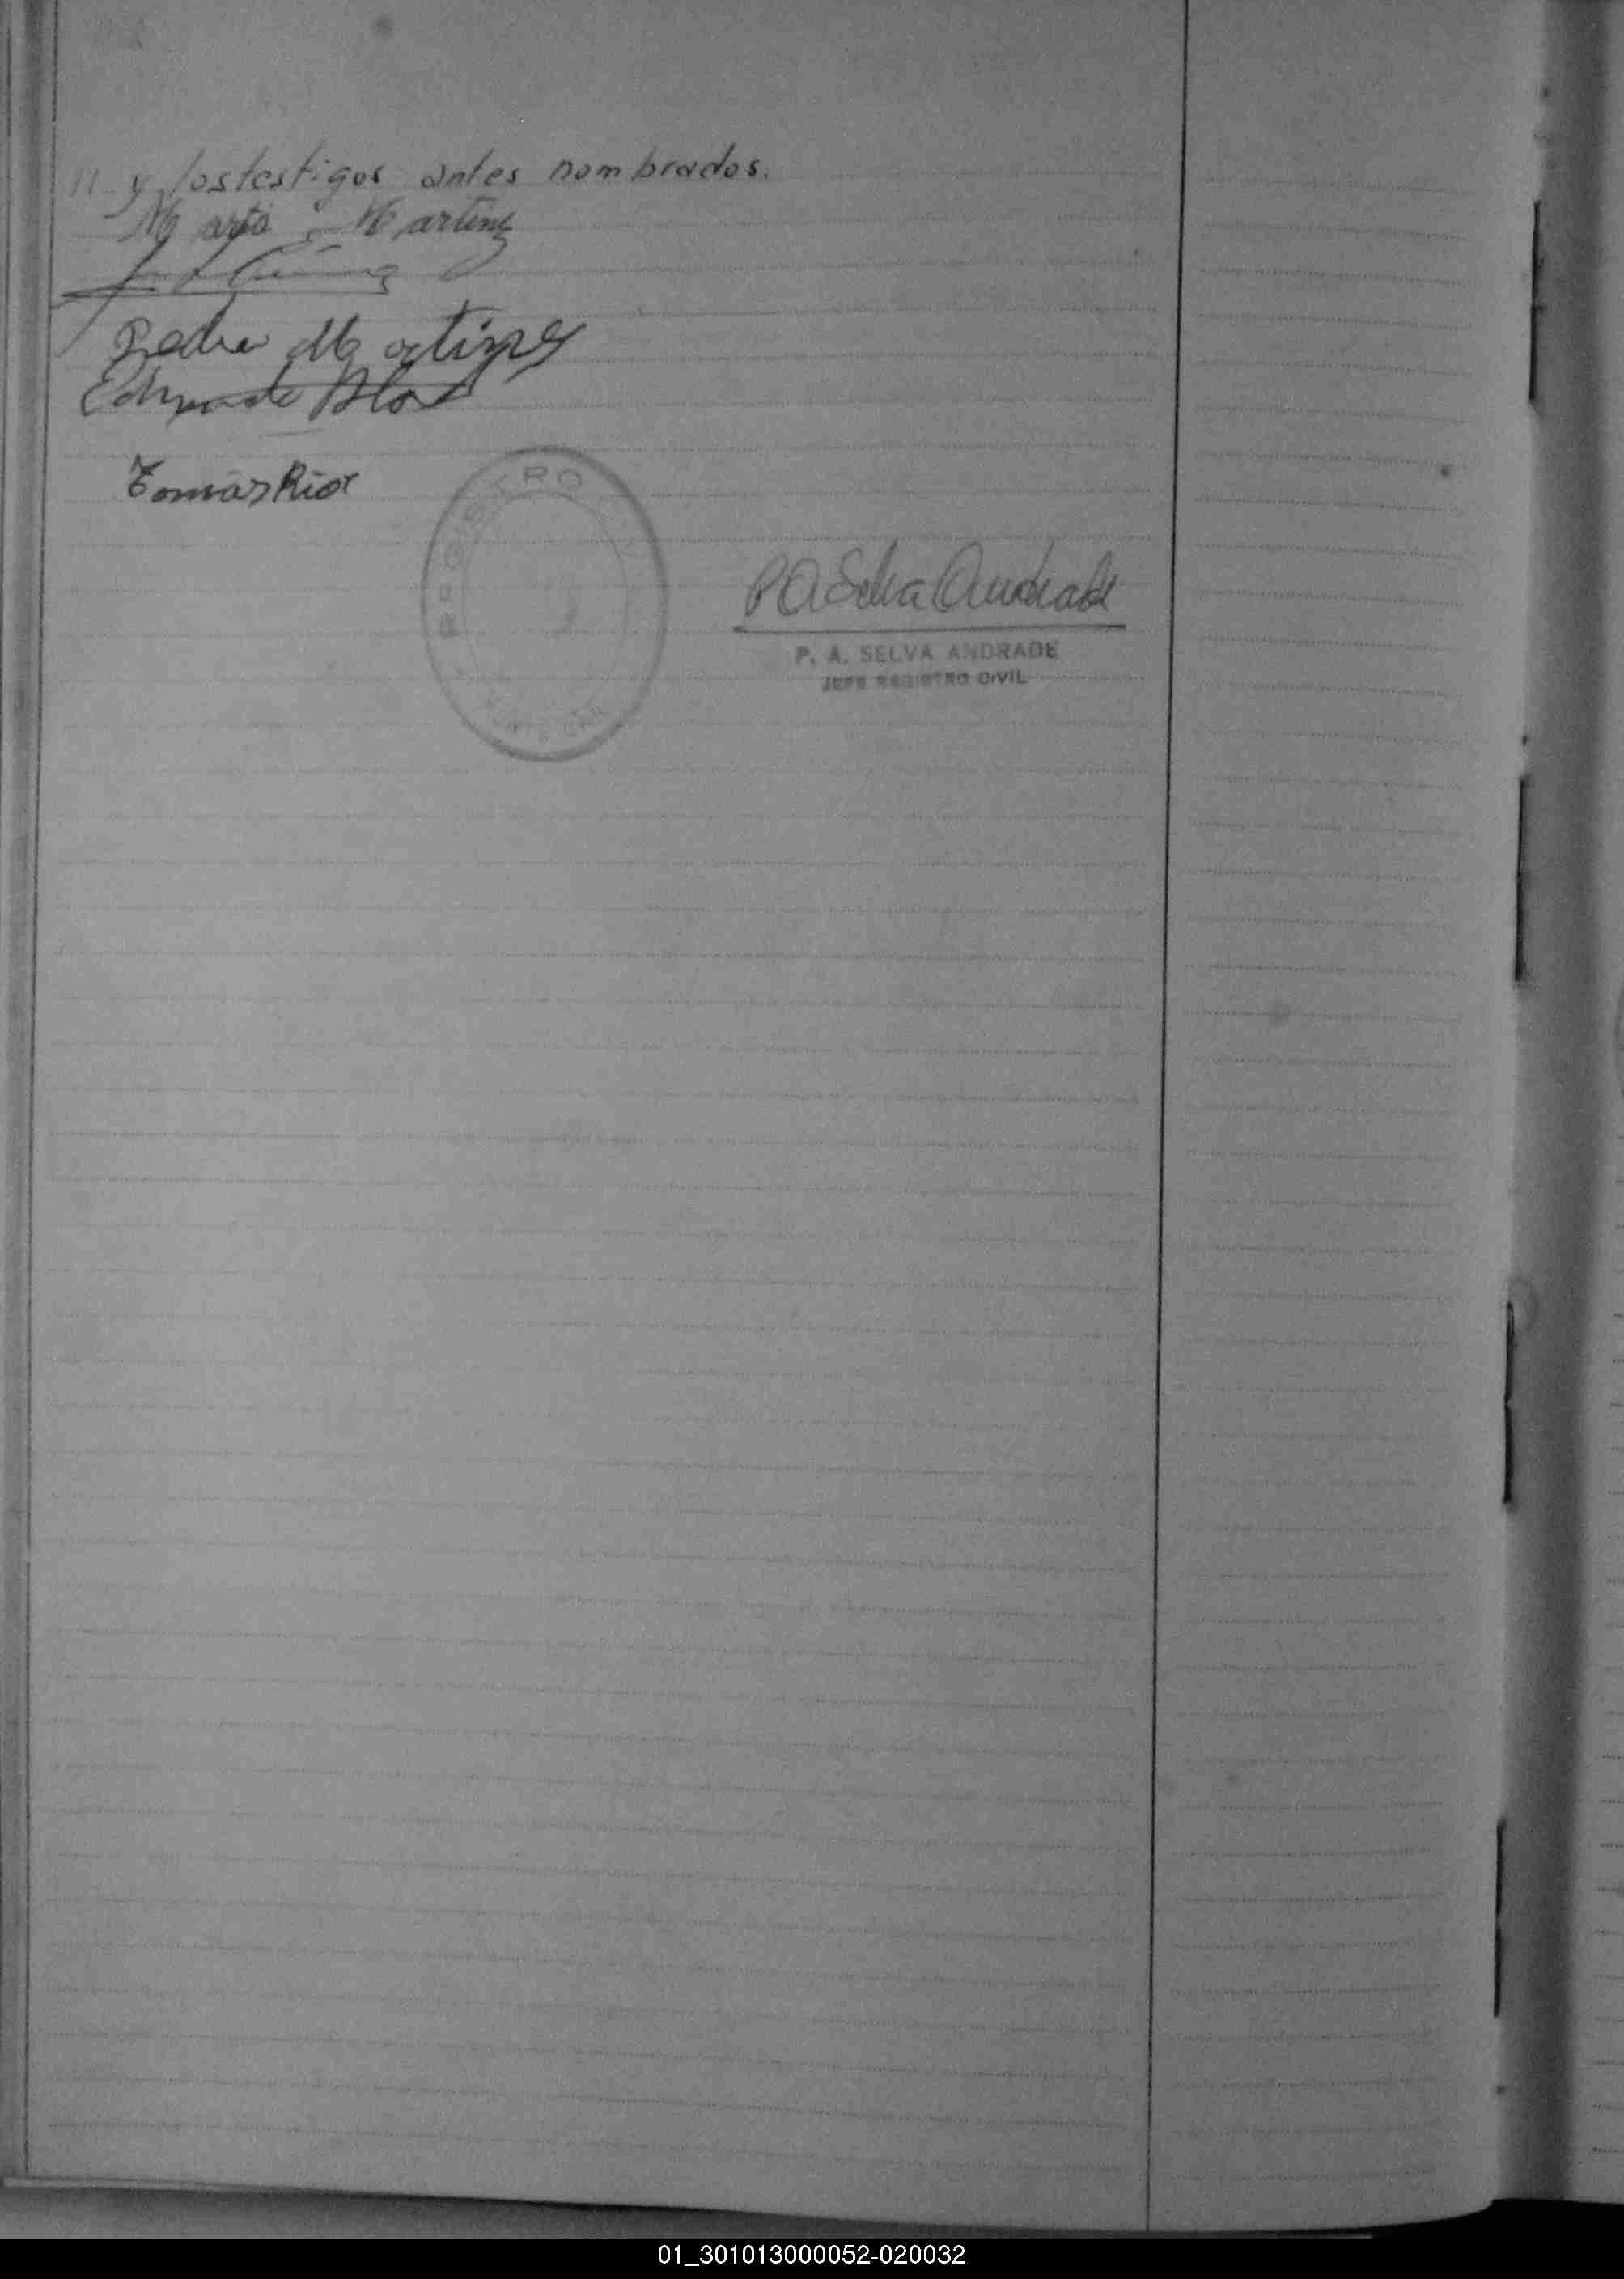 y los testigos antes nombrados.
Marta Martinez
Pedro Martinez
Tomás Rios
REGISTRO
PA Selva Andrade
P. A. SELVA ANDRADE
JEFE REGISTRO CIVIL
01_301013000052-020032